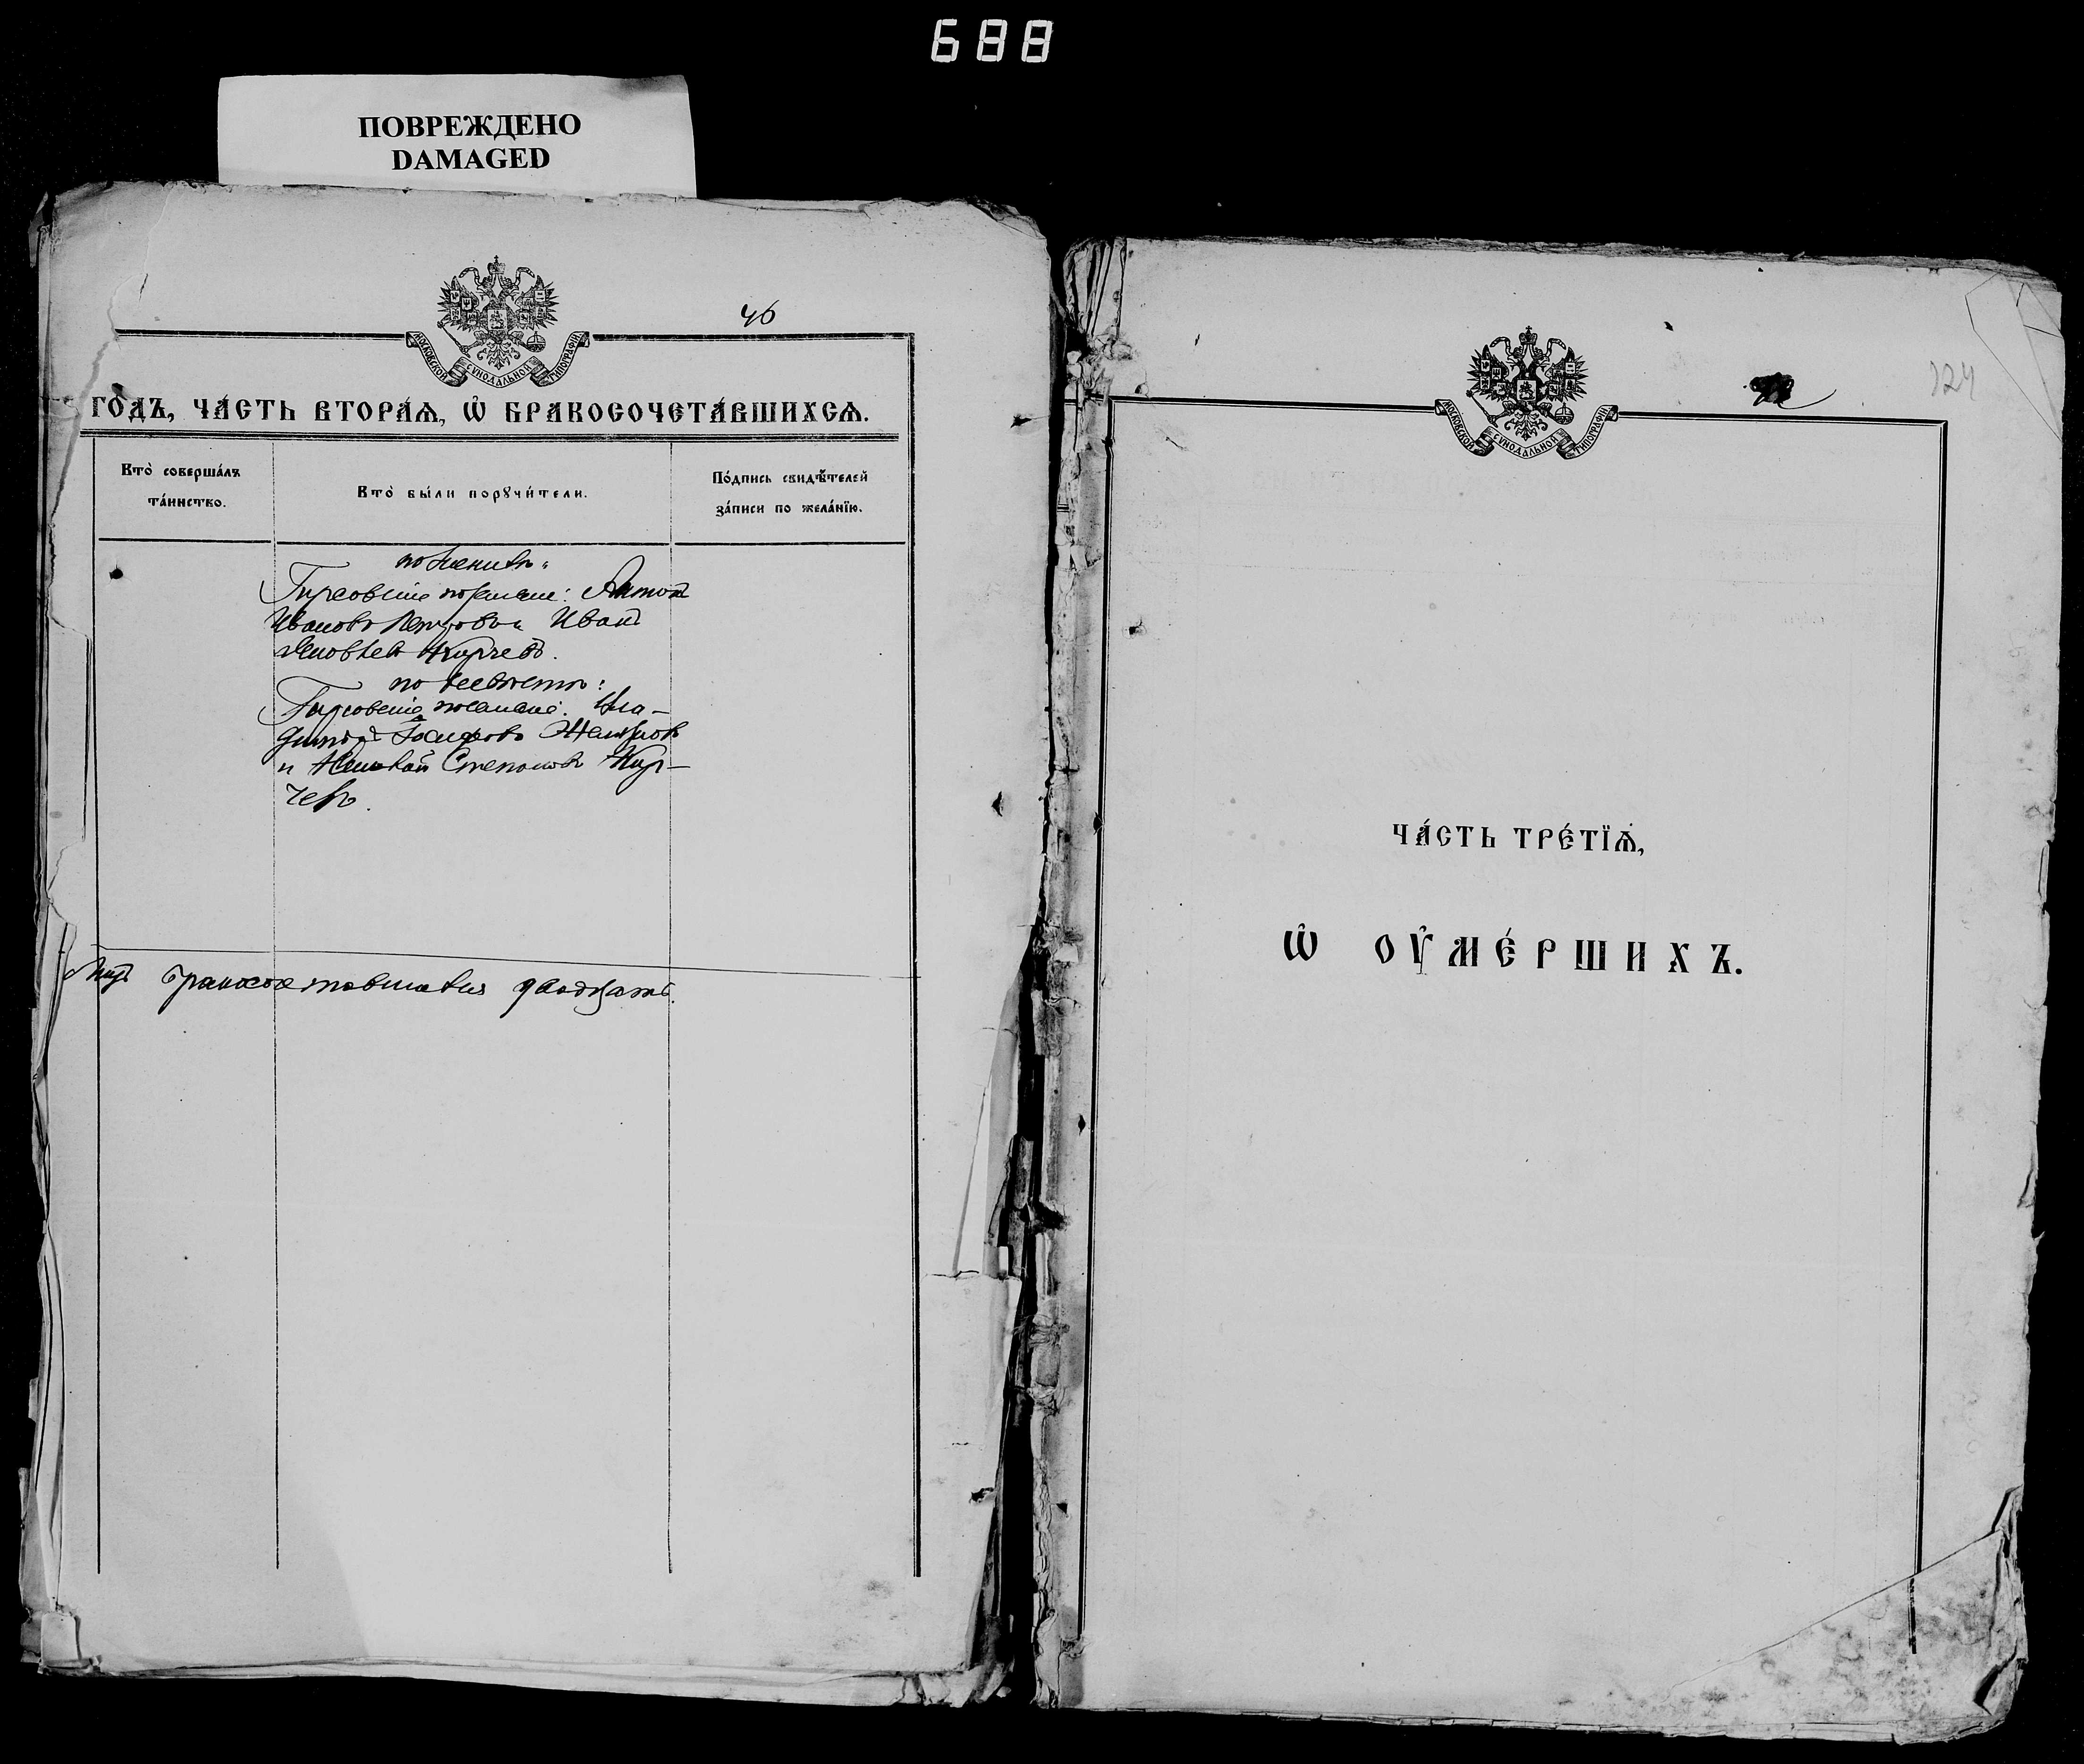 688
ПОВРЕЖДЕНО
DAMAGED
46
МОСКОВСКОЙ СѴНОДАЛЬНОЙ ТИПОГРАФІИ
ГО́ДЪ, ЧА́СТЬ ВТОРА́Я, Ѽ БРАКОСОЧЕТА́ВШИХСЯ.
Кто̀ соверша́лъ
та́инство.
Кто̀ бы́ли порꙋчи́тели.
По́дпись свидѣ́телей
за́писи по жела́нїю.
по жениху:
поселяне: Антонъ
Ивановъ Иванъ
по невѣстѣ:
поселяне: Вла-
димиръ
и Степановъ Кир-
чевъ.
бракосочетавшихся двадцать.
124
МОСКОВСКОЙ СѴНОДАЛЬНОЙ ТИПОГРАФІИ
ЧА́СТЬ ТРЕ́ТЇѦ,
Ѽ ОУ҆МЕ́РШИХЪ.